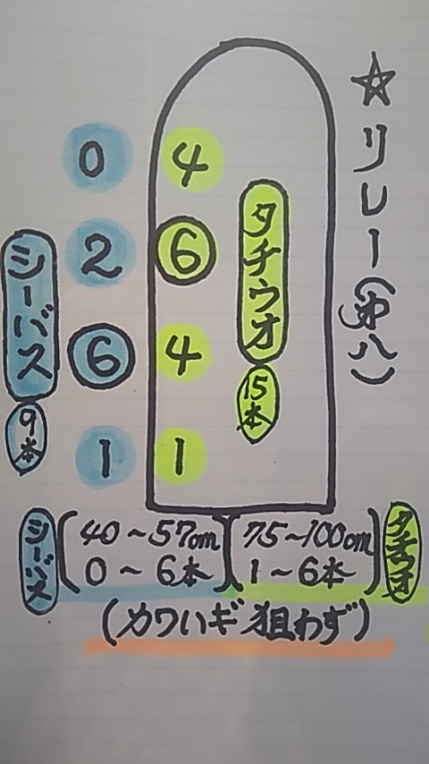 ☆リレー
シーバス
9本
0
2
6
1
4
6
4
1
タチウオ
15本
シーバス(40～57cm
0～6本)
(75～100cm
1～6本)タチウオ
(カワハギ狙わず)